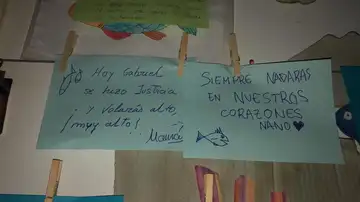 Hoy Gabriel
se hizo Justicia
¡Y Volarás alto,
¡muy alto!!
SIEMPRE NADARAS
EN NUESTROS
CORAZONES
NANO